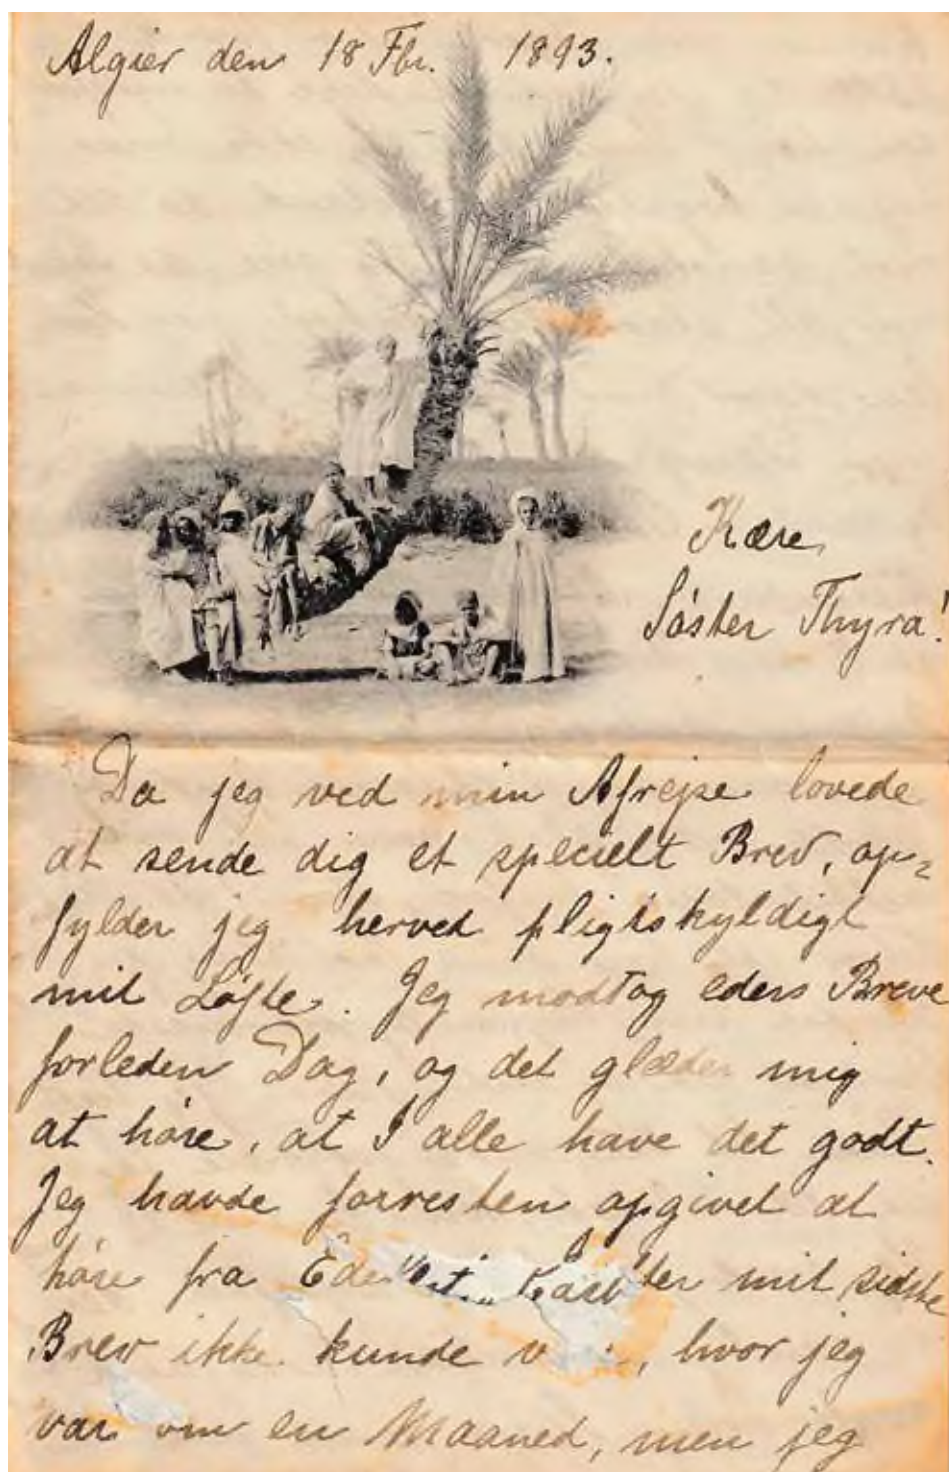 Algier den 18 Fbr. 1893.
Kære
Søster Thyra!
Da jeg ved min Afrejse lovede
at sende dig et specielt Brev, op=
fylder jeg herved pligtskyldigt
mit Løfte. Jeg modtog eders Breve
forleden Dag, og det glæder mig
at høre, at I alle have det godt.
Jeg havde forresten opgivet at
høre fra Eder mit sidste
Brev ikke kunde, hvor jeg
var om en Maaned, men jeg